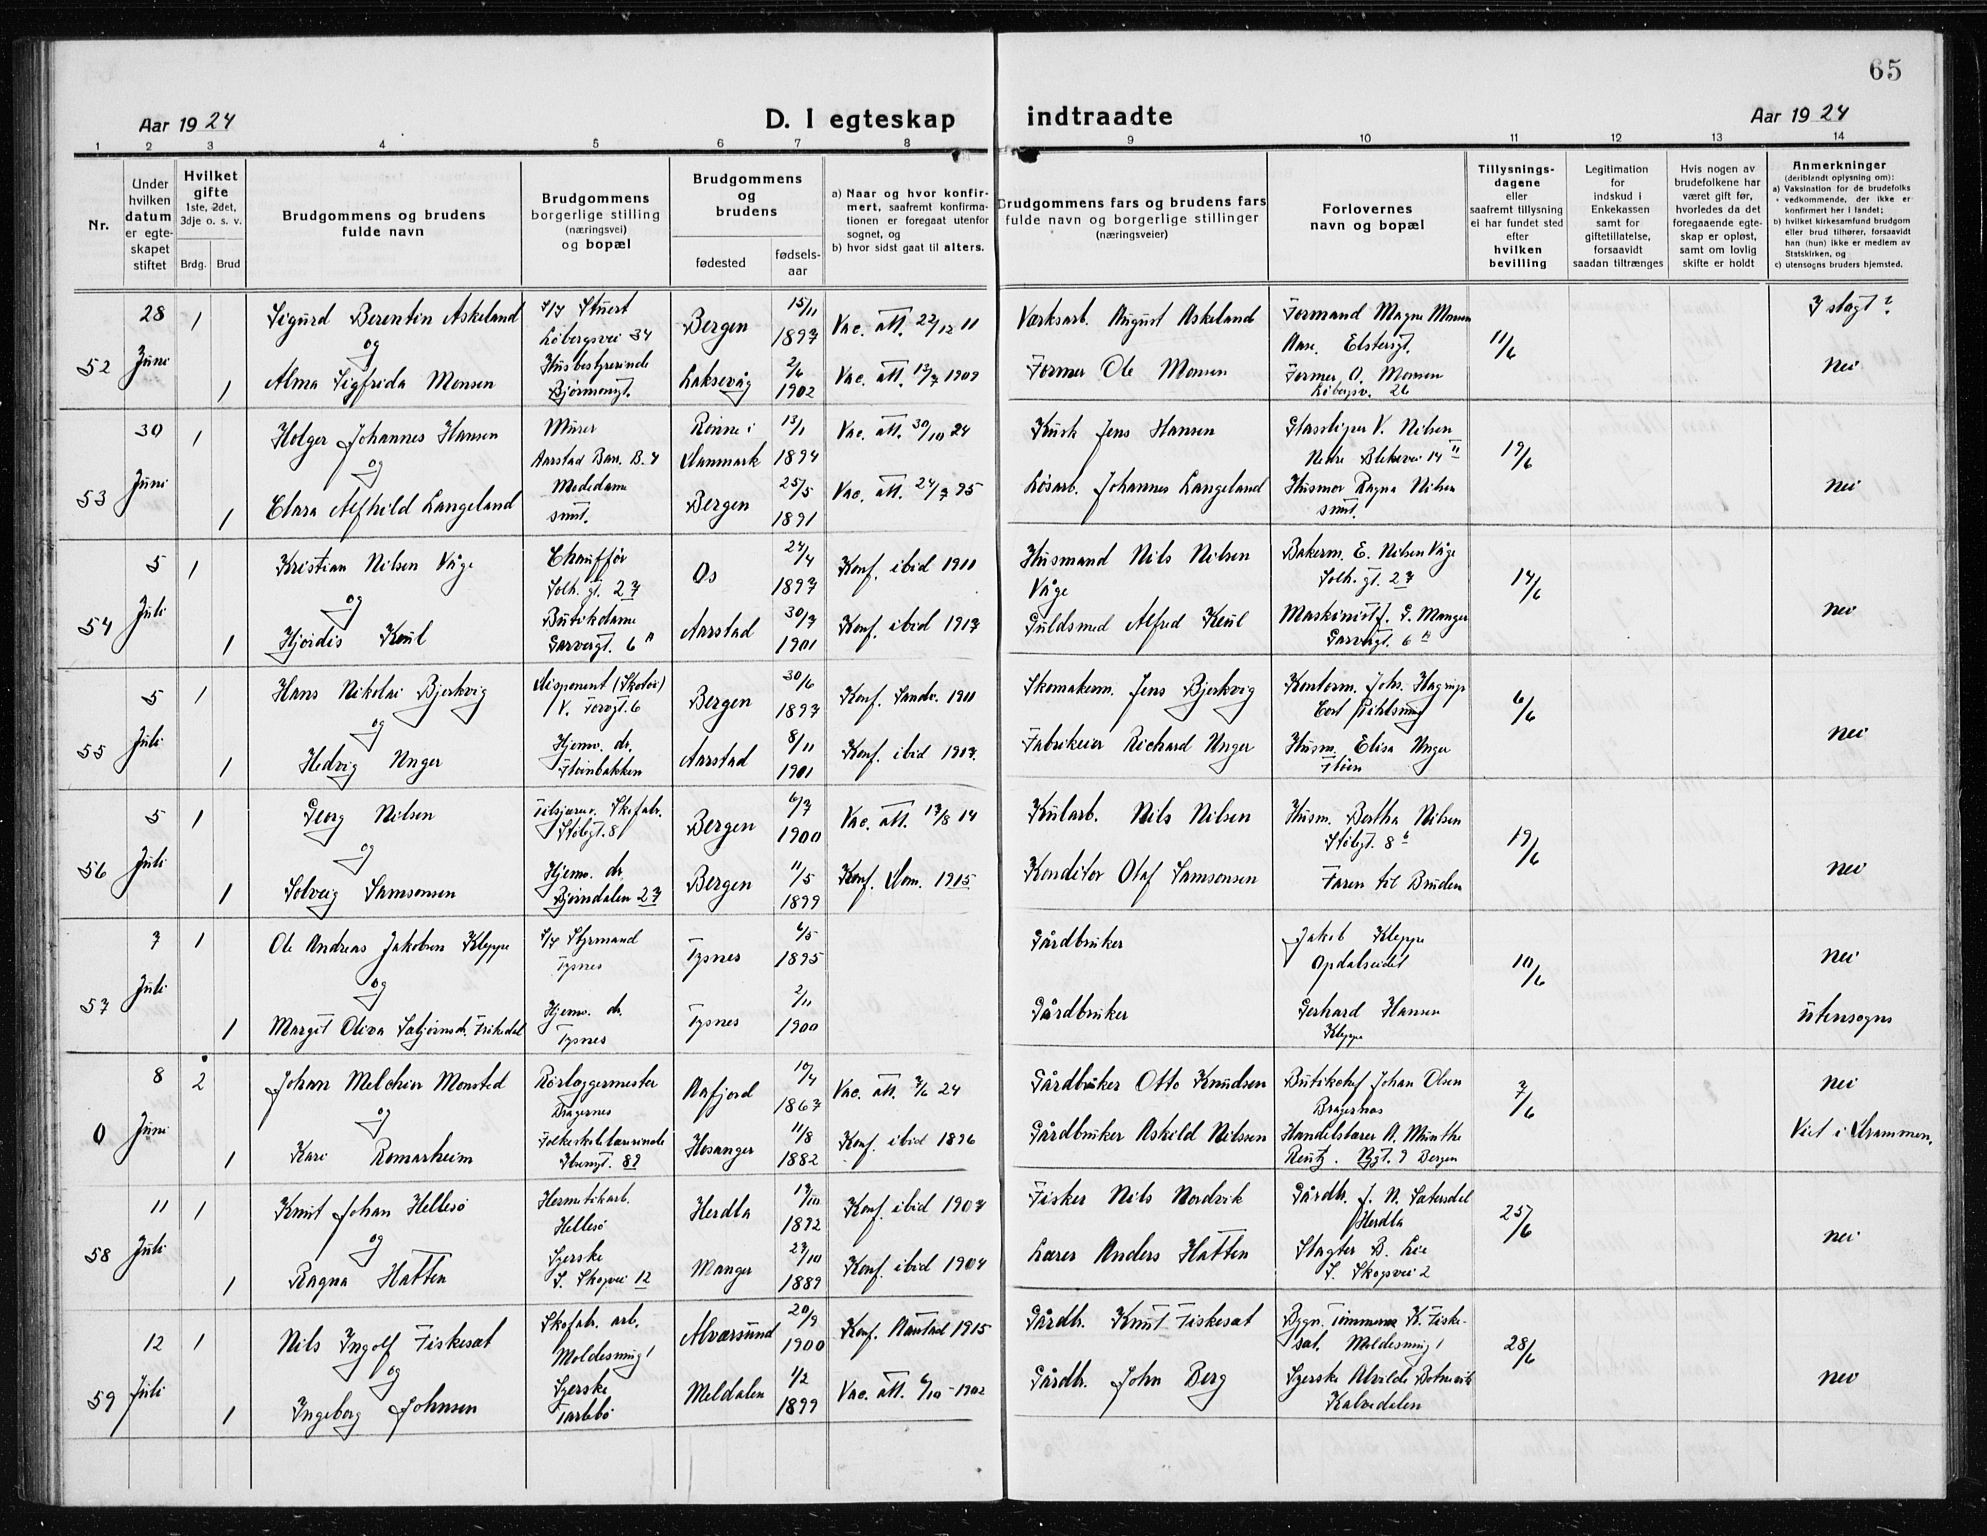 65
Aar 1924
D. I egteskap
indtraadte
Aar 1924
1 2 3 4 5 6 7 8 9 10 11 12 13 14
Nr.
Under hvilken datum er egteskapet stiftet
Hvilket gifte
1ste, 2det, 3dje o. s. v.
Brdg. Brud
Brudgommens og brudens fulde navn
Brudgommens borgerlige stilling (næringsvei) og bopæl
Brudgommens og brudens
fødested
fødselsaar
a) Naar og hvor konfirmert, saafremt konfirmationen er foregaat utenfor sognet, og
b) hvor sidst gaat til alters.
Brudgommens fars og brudens fars fulde navn og borgerlige stillinger (næringsveier)
Forlovernes navn og bopæl
Tillysningsdagene eller saafremt tillysning ei har fundet sted efter hvilken bevilling
Legitimation for indskud i Enkekassen samt for giftetillatelse, forsaavidt saadan tiltrænges
Hvis nogen av brudefolkene har været gift før, hvorledes da det foregaaende egteskap er opløst, samt om lovlig skifte er holdt
Anmerkninger
(deriblandt oplysning om):
a) Vaksination for de brudefolks vedkommende, der ikke er konfirmert her i landet;
b) hvilket kirkesamfund brudgom eller brud tilhører, forsaavidt han (hun) ikke er medlem av Statskirken, og
c) utensogns bruders hjemsted.
52 28 Juni 1 Sigurd Berentin Askeland S/S Stuert Løbergsvei 34 Bergen 15/11 1897 Vac. att. 22/12 11 Værksarb. August Askeland Formand Magne Monsen Aase. Elstersgt. 11/6 I slagt?
og
1 Alma Sigfrida Monsen Husbestyrerinde Bjørnsongt. Laksevåg 2/6 1902 Vac. att. 1909 Former Ole Monsen Former O. Monsen Løbergsv. 26 nei
53 30 Juni 1 Holger Johannes Hansen Murer Aarstad Bar. B. 4 Rønne i Danmark 13/1 1894 Vac. att. 30/10 24 Kusk Jens Hansen Glassliper V. Nilsen Nedre Blekevei 14 II 19/6
og
1 Clara Alfhild Langeland Modedame smst. Bergen 25/5 1891 Vac. att. 24/7 95 Løsarb. Johannes Langeland Husmor Ragna Nilsen smst. nei
54 5 Juli 1 Kristian Nilsen Våge Chauffør Solh. gt. 27 Os 24/4 1897 Konf. ibid 1911 Husmand Nils Nilsen Våge Bakerm. E. Nilsen Våge Solh. gt. 27 14/6
og
1 Hjørdis Keul Butikdame Garvergt. 6 A Aarstad 30/7 1901 Konf. ibid 1917 Guldsmed Alfred Keul Maskinist J. G. Manger Garvergt. 6 A nei
55 5 Juli 1 Hans Nikolai Bjerkvig Disponent (Skotøi) V. Torvgt. 6 Bergen 30/6 1897 Konf. Sandv. 1911 Skomakerm. Jens Bjerkvig Kontorm. Johs. Hagrup Cort Pihlsmug 6/6
og
1 Hedvig Unger Hjemv. dr. Fløenbakken Aarstad 8/11 1901 Konf. ibid 1917. Fabrikeier Richard Unger Husm. Elisa Unger Fløen nei
56 5 Juli 1 Georg Nilsen Tilskjærer. Skofabr. Stølegt. 8 Bergen 6/7 1900 Vac. att. 17/8 14 Kularb. Nils Nilsen Husm. Bertha Nilsen Stølegt. 8 b 19/6
og
1 Solveig Samsonsen Hjemv. dr. Bjørndalen 27 Bergen 11/5 1899 Konf. Dom. 1915 Konditor Olaf Samsonsen Faren til Bruden nei
57 7 Juli 1 Ole Andreas Jakobsen Kleppe S/S Styrmand Tysnes Tysnes 6/5 1895 Gårdbruker Jakob Kleppe Opdalseidet 10/6 nei
og
1 Margit Oliva Sabjørnsdr. Frikedal Hjemv. dr. Tysnes Tysnes 2/11 1900 Gårdbruker Gerhard Hansen Kleppe utensogns
0 8 Juni 2 Johan Melchior Monsted Rørlæggermester Bragernes Aafjord 10/4 1867 Vac. att. 24 Gårdbruker Otto Knudsen Butikchef Johan Olsen Bragernes 7/6 nei
og
1 Kari Romarheim Folkeskolelærerinde Ibsengt. 89 Hosanger 11/8 1882 Konf. ibid 1896 Gårdbruker Askild Nilssen Handelslærer A. Munthe Reutz. Nygt. 9 Bergen Viet i Drammen.
58 11 Juli 1 Knut Johan Hellesø Hermetikarb. Hellesø Herdla 1892 Konf. ibid 1907 Fisker Nils Nordvik Gårdb. J. N. Sætersdal Herdla 25/6
og
1 Ragna Hatten Syerske S. Skogvei 12 Manger 27/10 1889 Konf. ibid 1904 Lærer Anders Hatten Slagter B. Lie S. Skogsvei 2 nei
59 12 Juli 1 Nils Ingolf Fiskesæt Skofabr. arb. Moldesmug 1 Alværsund 20/9 1900 Konf. Naustad 1915 Gårdb. Knut Fiskesæt Bygn. tømmerm. K. Fiskesæt. Moldesmug 1 28/6
og
1 Ingeborg Johnsen Syerske Tarlebø Meldalen 1/2 1899 Vac. att. 6/10 - 1902 Gårdb. John Berg Syerske Alvilde Botnevik Kalvedalen nei